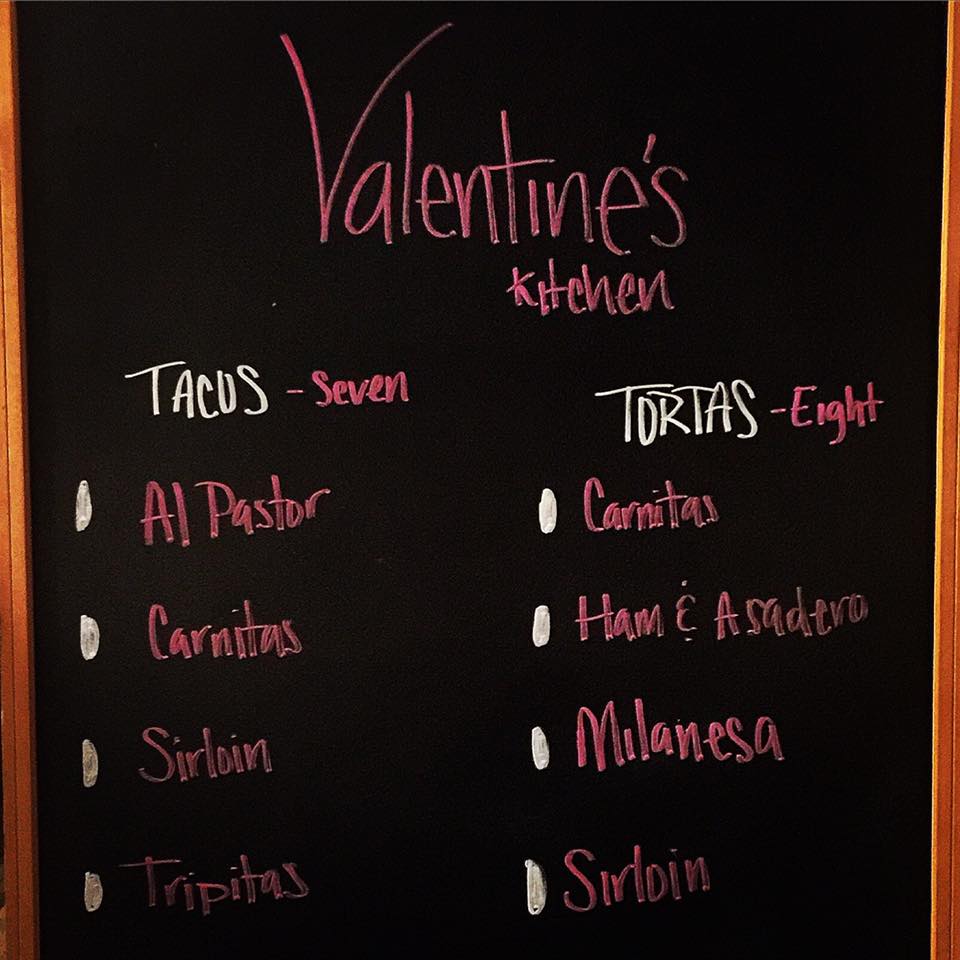 Valentine's
Kitchen
TACOS - Seven
Al Pastor
Carnitas
Sirloin
Tripitas
TORTAS - Eight
Carnitas
Ham & Asadero
Milanesa
Sirloin